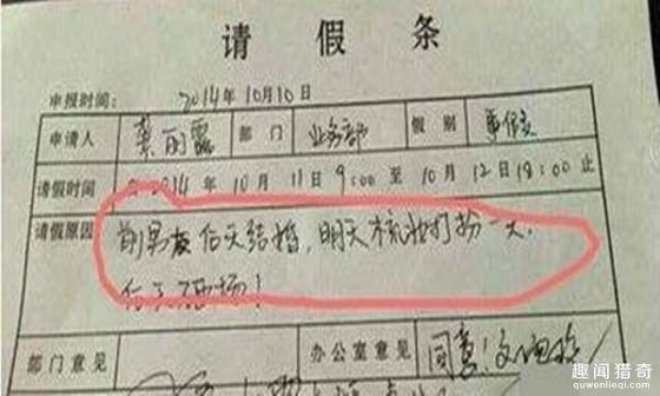 请假条
申报时间: 2014年10月10日
申请人 部门 业务部 假别 事假
请假时间 自2014年10月11日9:00至10月12日18:00止
请假原因 前男友后天结婚,明天梳妆打扮一天.
后天砸场!
部门意见 办公室意见 同意!
趣闻猎奇
quwenlieqi.com